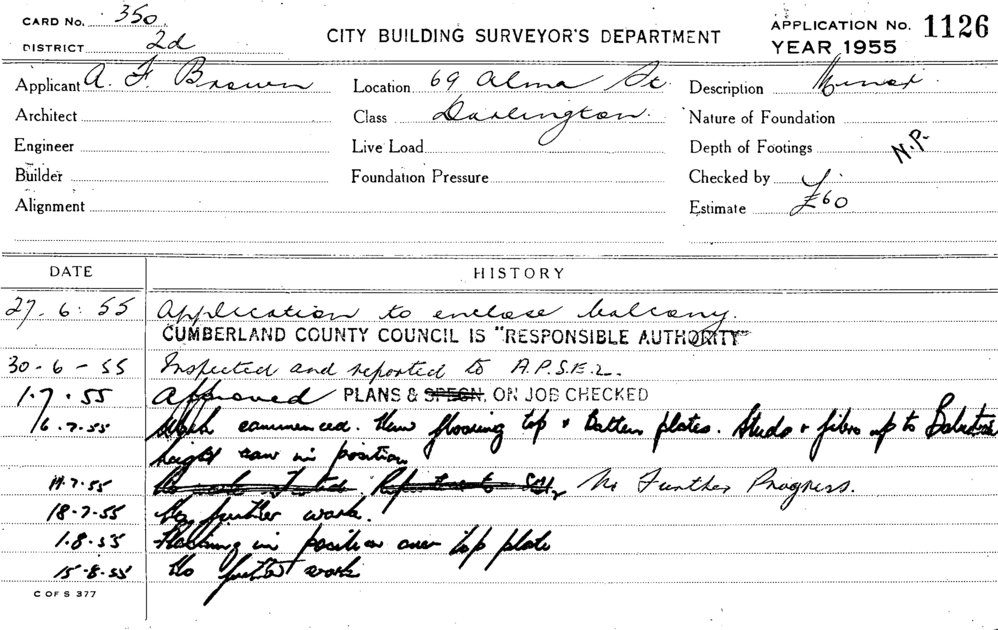 CARD No. 350.
DISTRICT 2d
CITY BUILDING SURVEYOR'S DEPARTMENT
APPLICATION No. 1126
YEAR 1955
Applicant A. F. Brown Location 69 Alma St. Description Minor
Architect Class Darlington. Nature of Foundation
Engineer Live Load Depth of Footings N.P.
Builder Foundation Pressure Checked by
Alignment Estimate £60
DATE HISTORY
27. 6. 55 Application to enclose balcony.
CUMBERLAND COUNTY COUNCIL IS "RESPONSIBLE AUTHORITY"
30-6-55 Inspected and reported to A.P.S.E.2.
1.7.55 Approved PLANS & SPECN. ON JOB CHECKED
6.7.55 Work commenced. New flooring top & Batten plates. Studs & fibro up to
height in position
14.7.55 No Further Progress.
18.7.55 No further work.
1.8.55 Flashing in position over top plate
15-8-55 No further work
C OF S 377